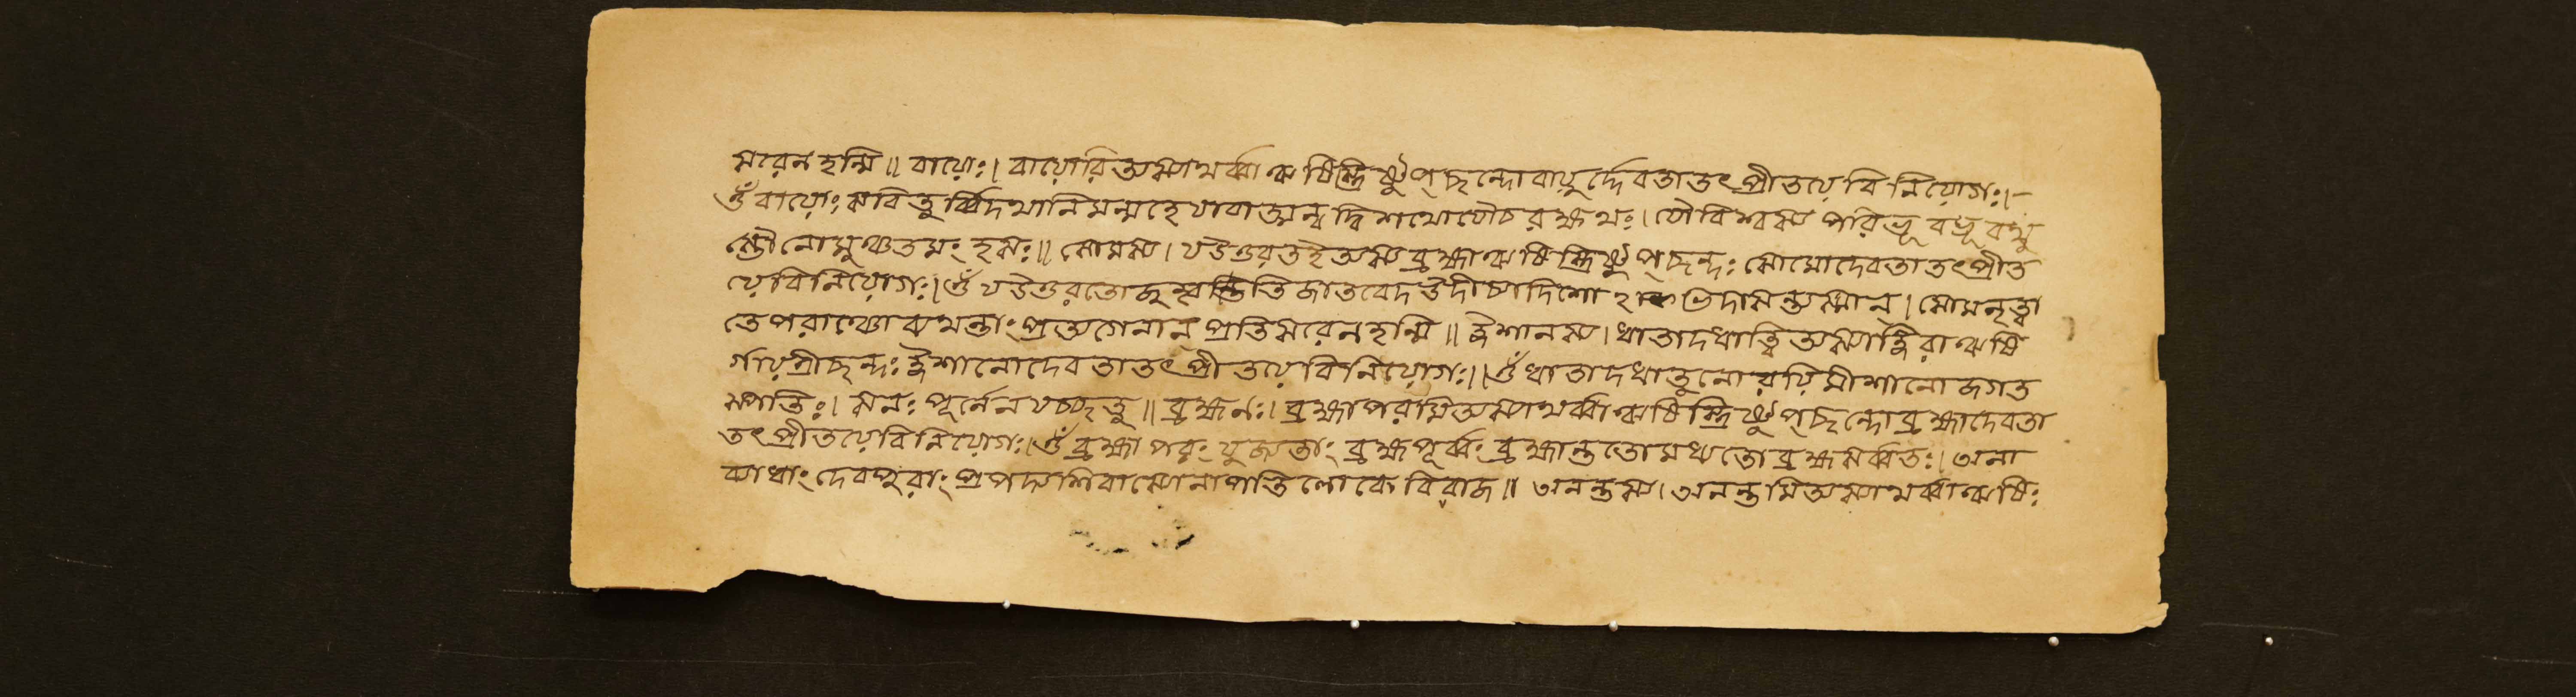 সরেন হন্মি॥ বায়োঃ। বায়োরিত্যস্যাথর্ব্বা ঋষিস্ত্রিষ্টুপ্ছন্দো বায়ুর্দ্দেবতা তৎপ্রীতয়ে বিনিয়োগঃ।—
ওঁ বায়োঃ সবিতুর্ব্বিদথানি মন্মহে যাবাত্মন্বদ্বিশথো যৌ চ রক্ষথঃ। যৌ বিশ্বস্য পরিভূ বভূবথু
স্তৌ নো মুঞ্চতমংহসঃ॥ সোমস্য। য উত্তরত ইত্যস্য ব্রহ্মা ঋষিস্ত্রিষ্টুপ্ছন্দঃ সোমো দেবতা তৎপ্রীত
য়ে বিনিয়োগঃ।ওঁ য উত্তরতো জুহ্বতি জাতবেদ উদীচ্যা দিশো ভিদাসন্ত্যস্মান্। সোমমৃত্বা
তে পরাঞ্চো ব্যথন্তাং প্রত্যগেনান্ প্রতিসরেন হন্মি॥ ঈশানস্য। ধাতা দধাত্বিত্যস্যাঙ্গিরা ঋষি
র্গায়ত্রীছন্দঃ ঈশানো দেবতা তৎপ্রীতয়ে বিনিয়োগঃ।।ওঁ ধাতা দধাতু নো রয়িমীশানো জগত
স্পতিঃ। সনঃ পূর্নেন যচ্ছতু॥ ব্রহ্মনঃ। ব্রহ্মাপরমিত্যস্যাথর্ব্বা ঋষিস্ত্রিষ্টুপ্ছন্দো ব্রহ্মা দেবতা
তৎপ্রীতয়ে বিনিয়োগঃ।ওঁ ব্রহ্মাপরং যুজ্যতাং ব্রহ্মপূর্ব্বং ব্রহ্মান্ততো মধ্যতো ব্রহ্মসর্ব্বতঃ। অনা
ব্যাধাং দেবপুরাং প্রপদ্য শিবা স্যোনা পতিলোকে বিরাজ॥ অনন্তস্য। অনন্তমিত্যস্যাথর্ব্বা ঋষিঃ